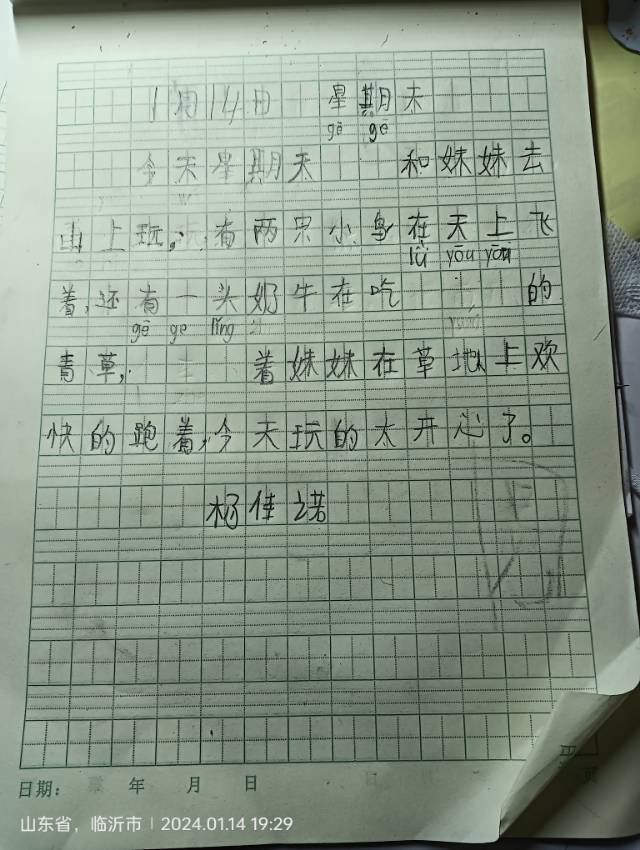 1月14日 星期天
gē gē
今天星期天 和妹妹去
山上玩,有两只小鸟在天上飞
lǜ yōu yōu
着,还有一头奶牛在吃 的
gē ge lǐng
青草, 着妹妹在草地上欢
快的跑着,今天玩的太开心了。
杨佳诺
日期: 年 月 日
山东省,临沂市 | 2024.01.14 19:29